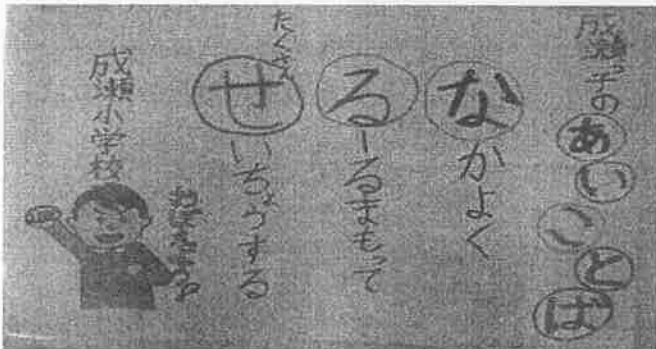 成瀬っ子のあいことば
なかよく
るーるまもって
たくさん
せいちょうする
成瀬小学校